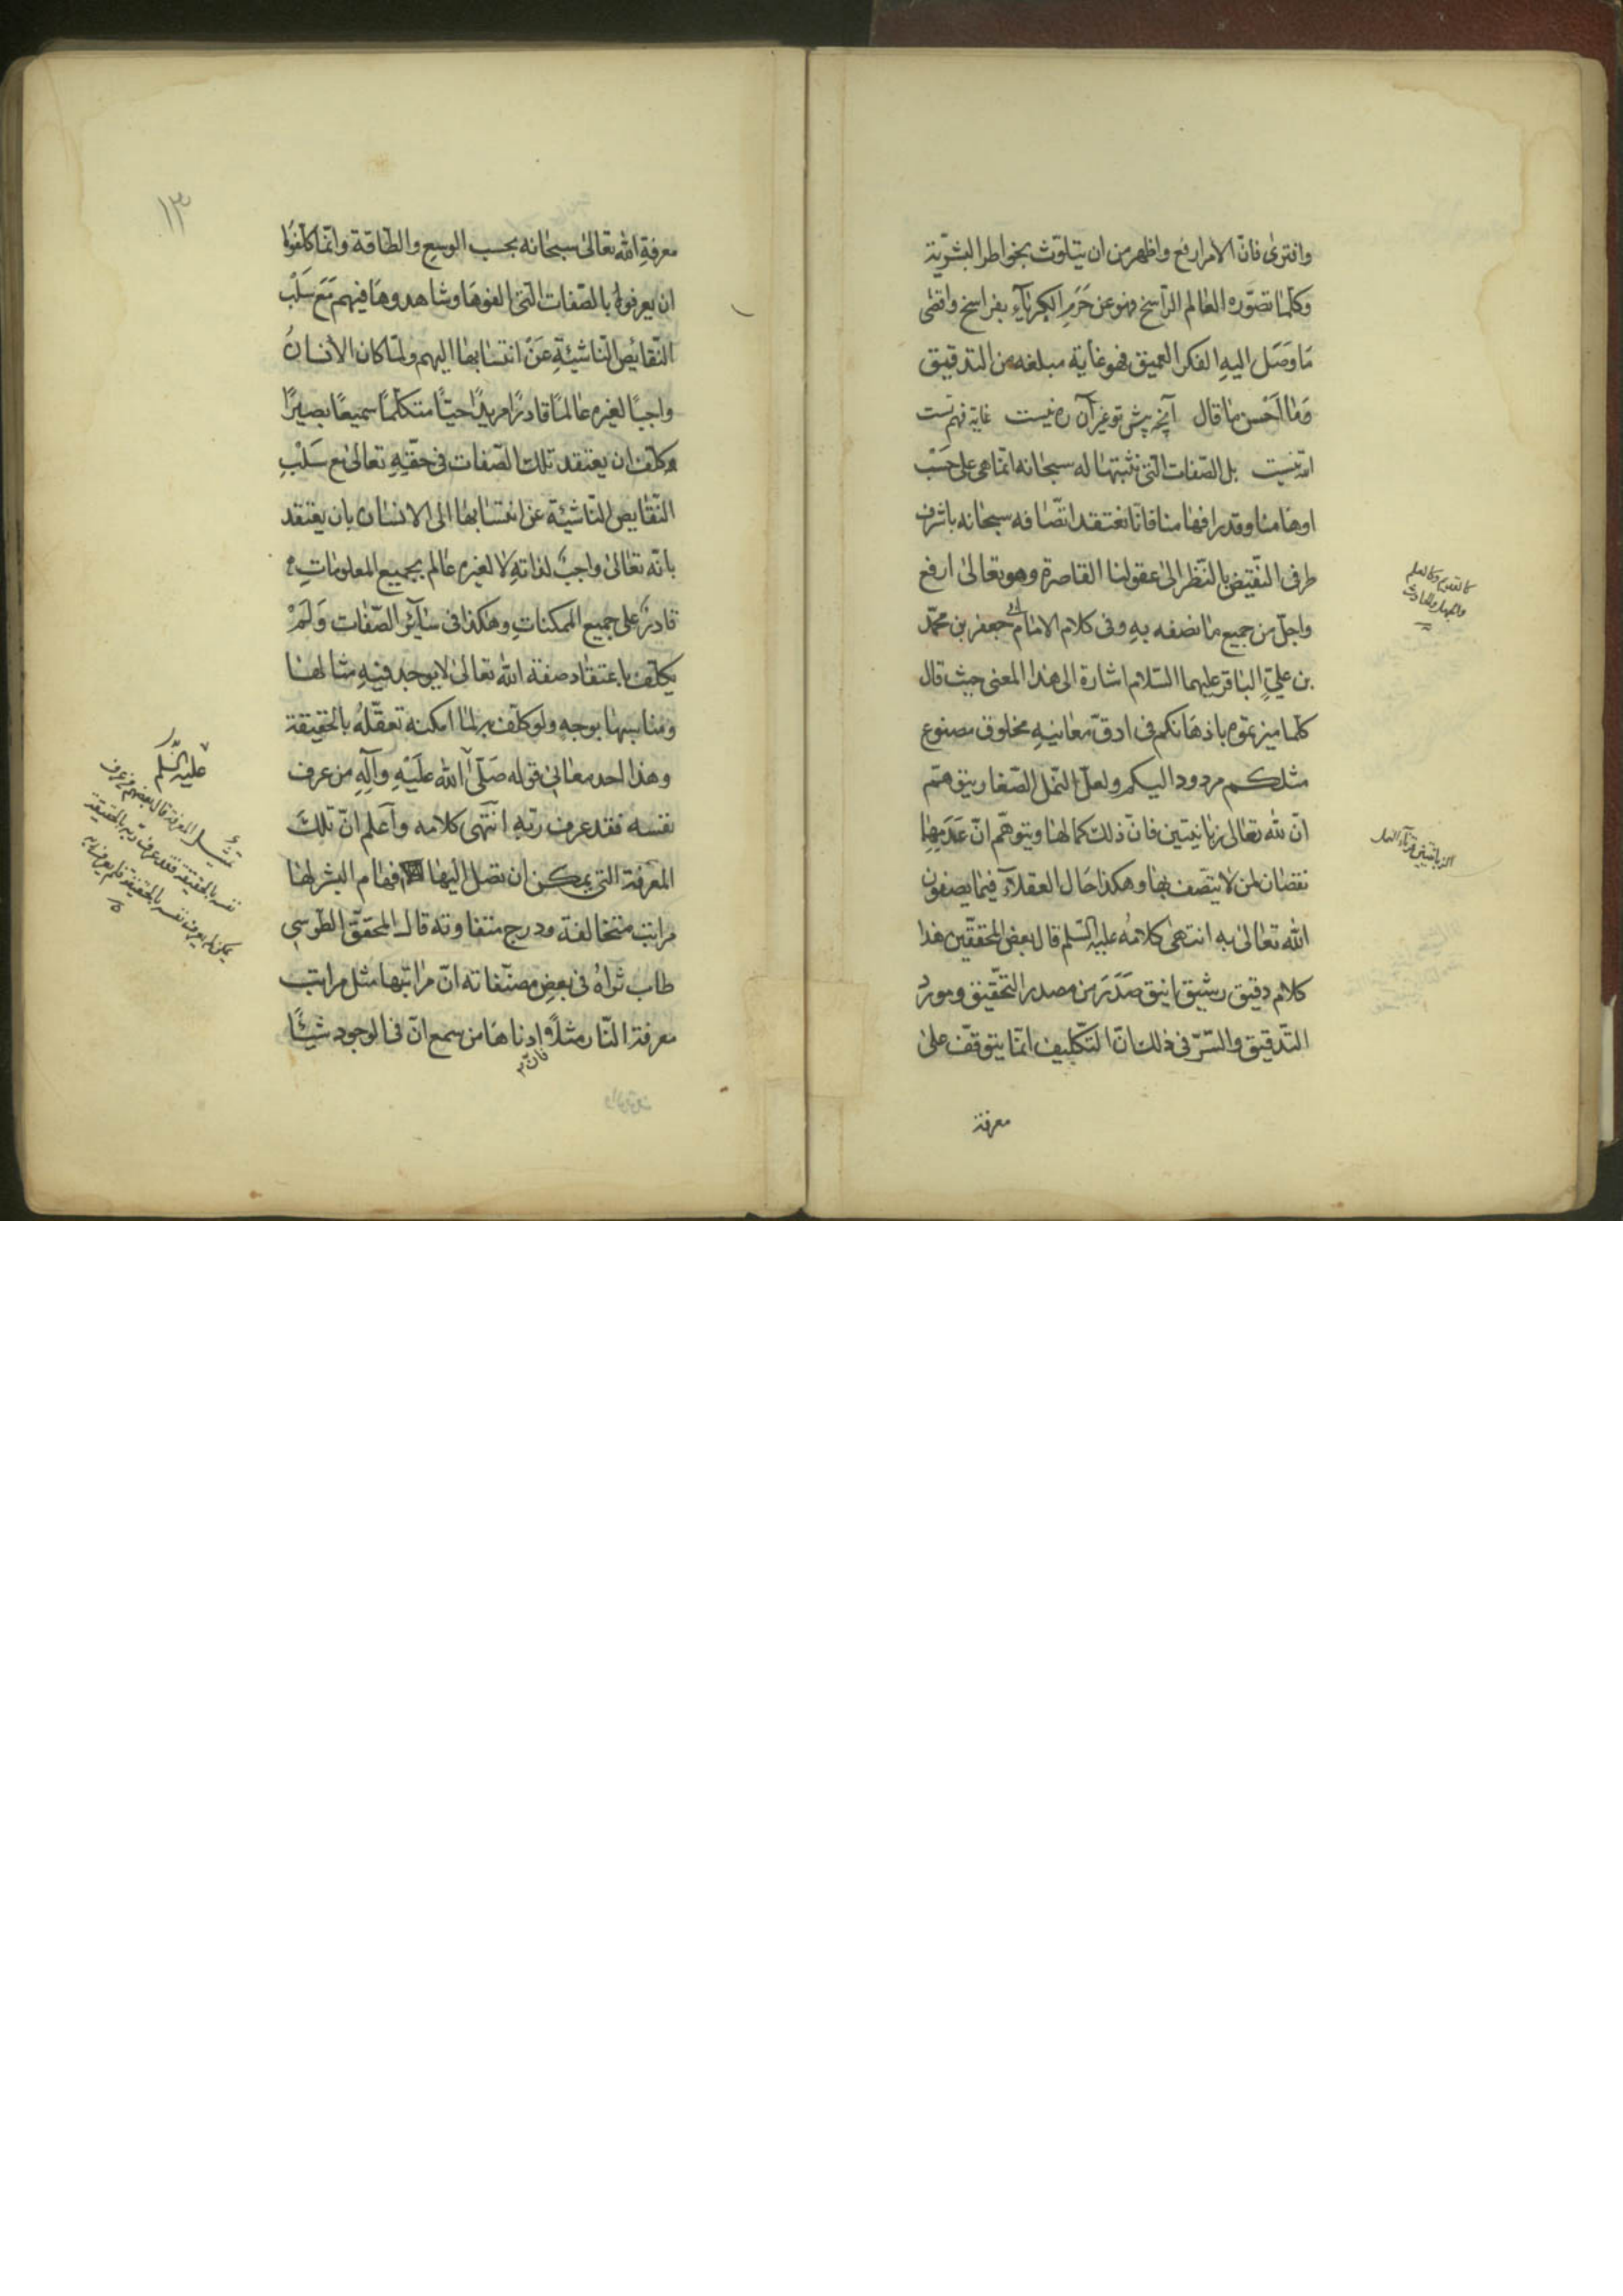 وافترى فانّ الامر ارفع واظهر من ان يتلوّث بخواطر البشريّة
وكلّما تصوّره العالم الرّاسخ فهو عن حَرَمِ الكبرياءِ بفراسخ واقصٰى
مَا وَصَل اليهِ الفكر العميق فهو غاية مبلغه من التدقيق
وَمٰا اَحْسن مٰا قال آنچه پيش تو غير آن ره نيست غاية فهم تست
اللّه نيست بل الصّفات الّتى نثبتها له سبحانه انّما هى على حَسْب
اوهامنا وقدر افهامنا فانّا نعتقد اتّصافه سبحانه باشرف
طرفى النّقيض بالنّظر الىٰ عقولنا القاصرة وهو تعالىٰ ارفع
واجلّ من جميع مٰا نصفه بهِ وفى كلام الامام ابى جعفر بن محمّد
بن علىٍّ الباقر عليهما السّلام اشارة الى هذا المعنى حيث قال
كلّما ميزتموه باذهانكم فى ادقّ معانيهِ مخلوق مصنوع
مثلكم مردود اليكم ولعلّ النّمل الصّغار يتوهّم
انّ للّه تعالى زبانيتين فانّ ذلك كمالها ويتوهّم انّ عَدَمِهٰا
نقصان لمن لا يتّصف بها وهكذا حَال العقلآء فيمٰا يصفون
اللّه تعالىٰ به انتهىٰ كلامُه عليه السّلم قال بعض المحقّقين هذا
كلام دقيق رشيق انيق صَدَرَ من مصدر التّحقيق ومورد
التّدقيق والسّرّ فى ذلك انّ التّكليف انّما يتوقّف علىٰ
معرفة
كالقديم وكالعلم
والجهل والحادث
الزبانيتين قرنآء النمل
١٣
معرفةِ اللّه تعالىٰ سبحانه بحسب الوسع والطّاقة وانّما كلّفوا
ان يعرفوهُ بالصّفات الّتى الفوهَا وشاهدوهَا فيهم مَعَ سَلْب
النّقايص النّاشيئةِ عَنْ انتسابها اليهم ولمّا كان الأنسانُ
واجبًا لغيره عالمًا قادرًا مريدًا حيّا متكلّمًا سميعًا بصيرًا
وكلّف ان يعتقد تلك الصّفات فى حقّهِ تعالىٰ مع سَلْبِ
النّقايص النّاشيئة عن انتسابها الى الانسان بان يعتقد
بانّه تعالىٰ واجبٌ لذاتهِ لا لغيره عالم بجميع المعلومٰاتِ
قادرٌ على جميع الممكناتِ وهكذا فى سٰآئر الصّفات وَلَمْ
يكلّف باعتقاد صفة اللّه تعالىٰ لا يوجد فيهِ مثالهٰا
ومناسبها بوجهٍ ولو كلّف بهٖ لمٰا امكنه تعقّلهُ بالحقيقة
وهذا احد معانى قوله صَلّى اللّه عَلَيْهِ وآلِهِ من عرف
نفسه فقد عرف ربّهِ انتهى كلامه وآعلم انّ تلكَ
المعرفة التى يمكن ان تصل اليهٰا افهٰام البشر لهٰا
مراتب متخالفة ودرج متفاوتة قال المحقّق الطّوسى
طاب ثراهُ فى بعضِ مصنّفاته انّ مراتبها مثل مراتب
معرفة النّار مثلاً فانّ ادناهَا من سمع انّ فى الوجود شيئًا
عليه السّلم
المعرفة قال بعضهم من عرف
نفسه بالحقيقة فقد عرف ربّه بالحقيقة
يمكن لم يعرف نفسه بالحقيقة فلم يعرف ربه